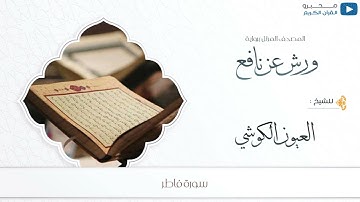 محبرو
القرآن الكريم
المصحف المرتل برواية
ورش عن نافع
للشيخ :
العيون الكوشي
سورة فاطر